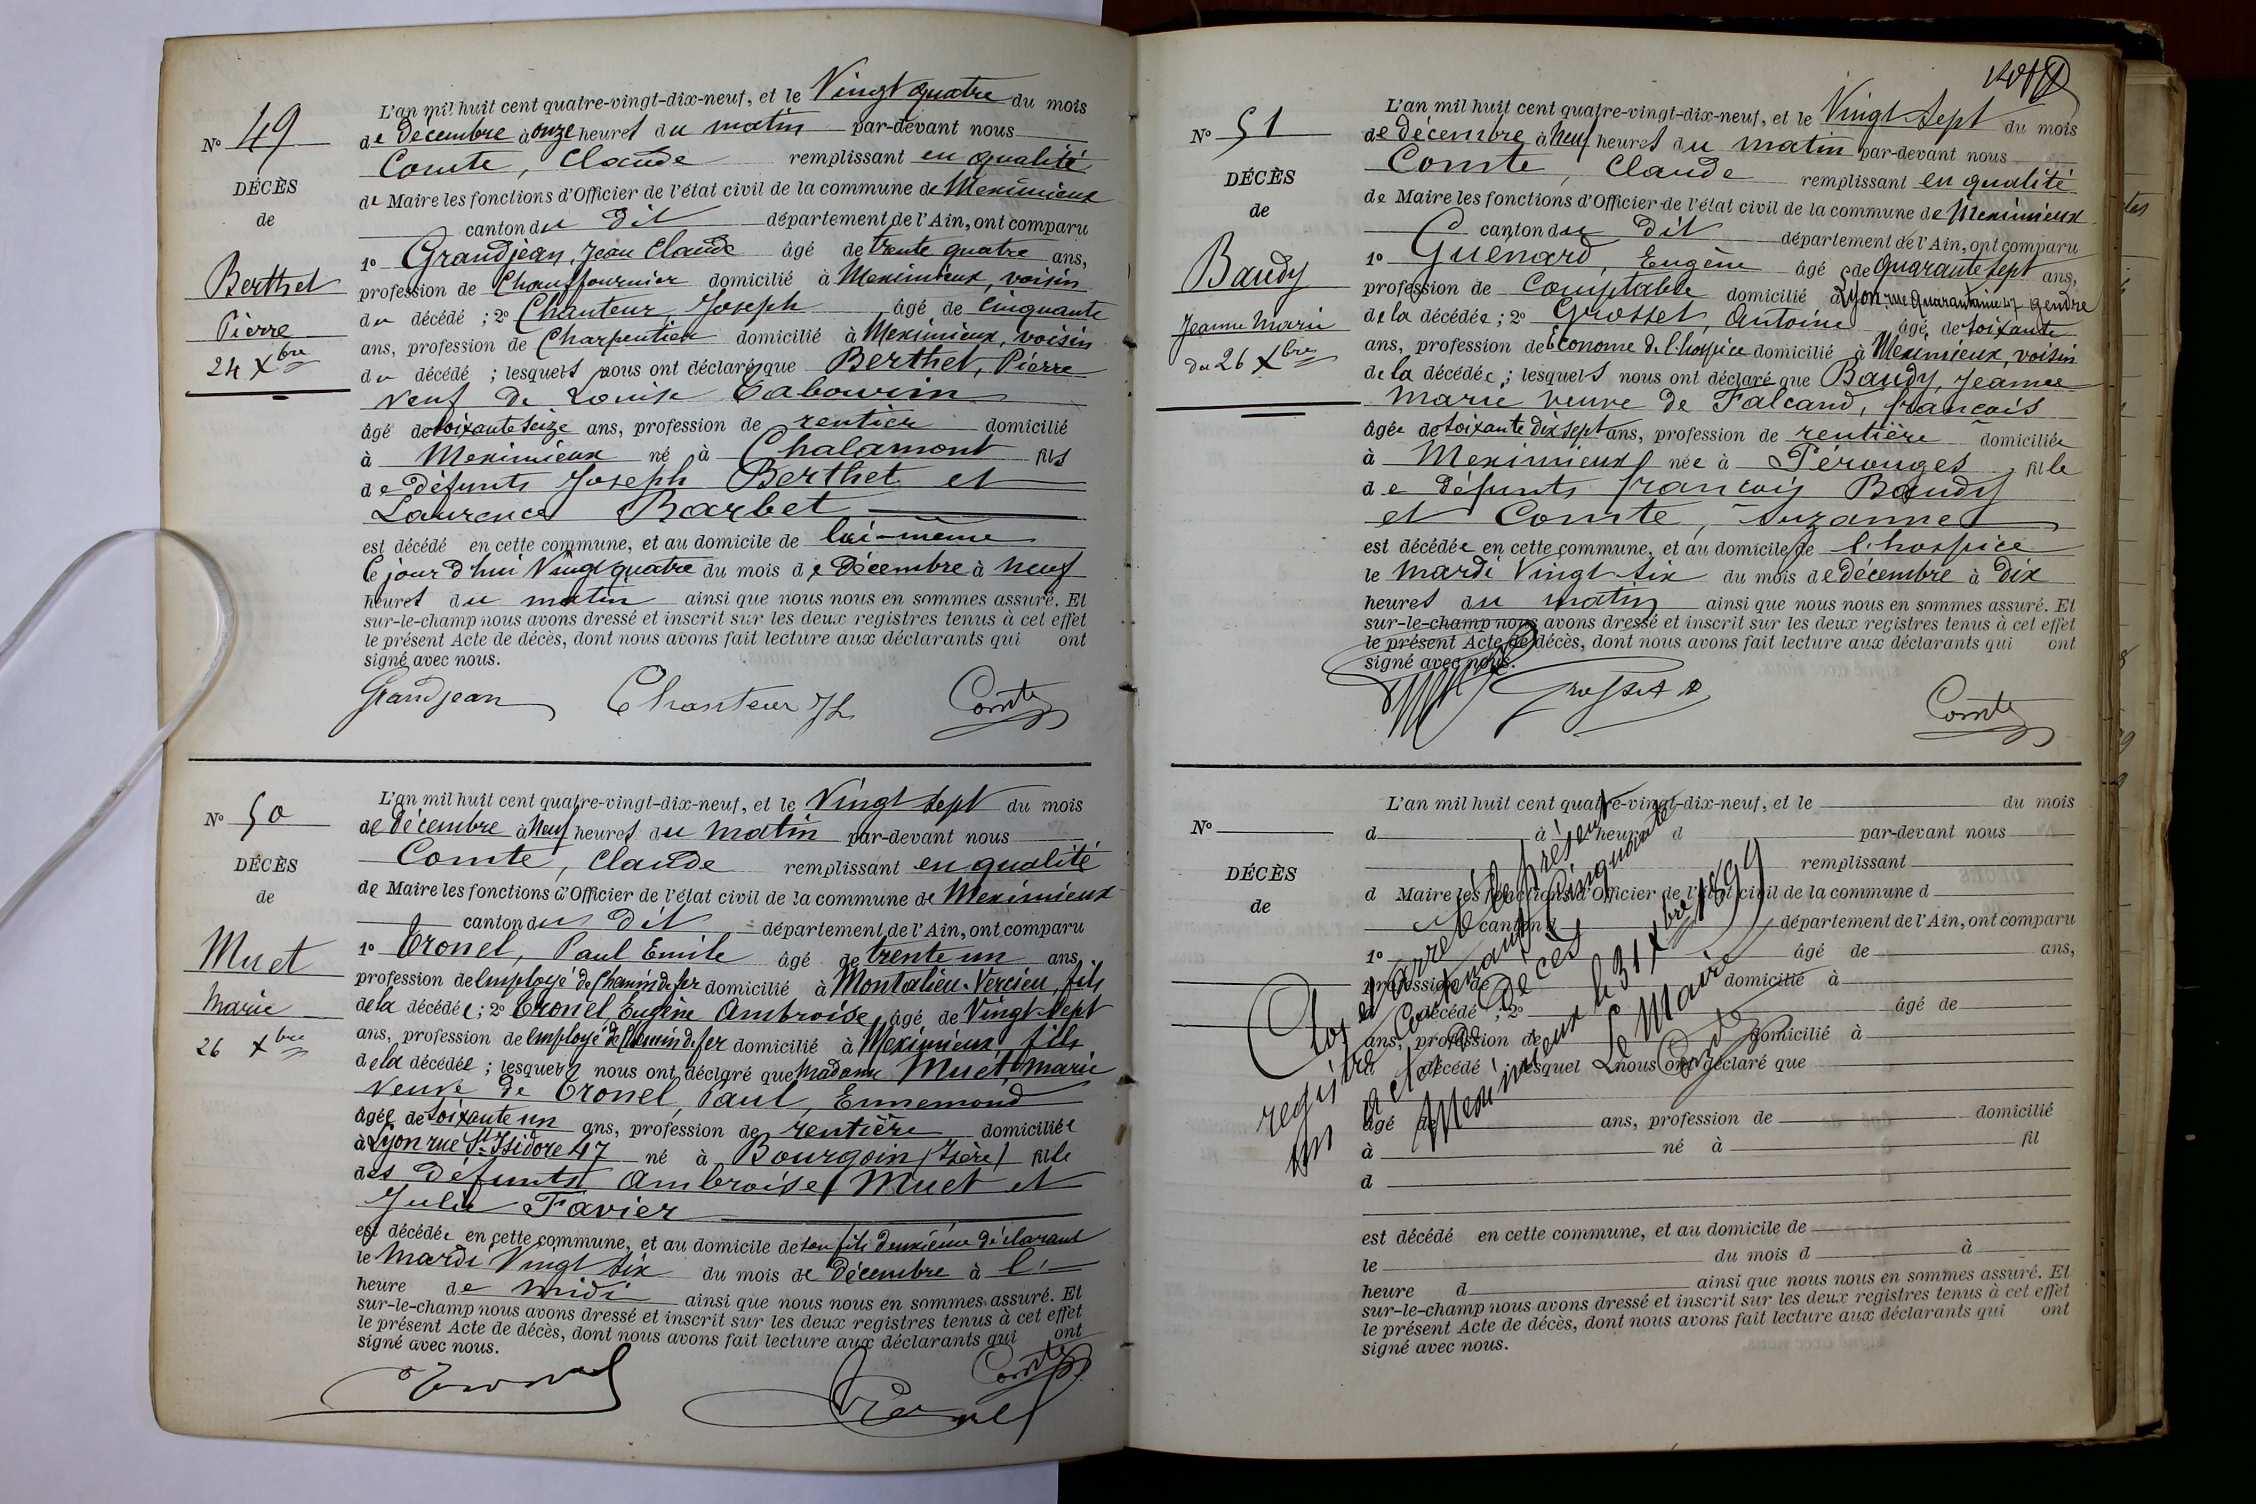 N° 49
DÉCÈS
de
Berthet
Pierre
24 Xbre
L'an mil huit cent quatre-vingt-dix-neuf, et le Vingt quatre du mois
de décembre à onze heures du matin par-devant nous
Comte, Claude remplissant en qualité
de Maire les fonctions d'Officier de l'état civil de la commune de Meximieux
canton du dit département de l'Ain, ont comparu
1° Grandjean, Jean Claude âgé de trente quatre ans,
profession de Chauffournier domicilié à Meximieux, voisin
du décédé ; 2° Chanteur, Joseph âgé de cinquante
ans, profession de Charpentier domicilié à Meximieux, voisin
du décédé ; lesquels nous ont déclaré que Berthet, Pierre
veuf de Louise Tabourin
âgé de soixante seize ans, profession de rentier domicilié
à Meximieux né à Chalamont fils
de défunts Joseph Berthet et
Laurence Barbet
est décédé en cette commune, et au domicile de lui-même
le jour d'hui Vingt quatre du mois de Décembre à neuf
heures du matin ainsi que nous nous en sommes assuré. Et
sur-le-champ nous avons dressé et inscrit sur les deux registres tenus à cet effet
le présent Acte de décès, dont nous avons fait lecture aux déclarants qui ont
signé avec nous.
Grandjean Chanteur Jh Comte
N° 50
DÉCÈS
de
Muet
Marie
26 Xbre
L'an mil huit cent quatre-vingt-dix-neuf, et le Vingt sept du mois
de Décembre à Neuf heures du matin par-devant nous
Comte, Claude remplissant en qualité
de Maire les fonctions d'Officier de l'état civil de la commune de Meximieux
canton du dit département de l'Ain, ont comparu
1° Tronel, Paul Emile âgé de trente un ans,
profession de Employé de Chemin de fer domicilié à Montalieu-Vercieu, fils
de la décédée ; 2° Tronel, Eugène Ambroise âgé de Vingt-sept
ans, profession de Employé de Chemin de fer domicilié à Meximieux, fils
de la décédée ; lesquels nous ont déclaré que madame Muet, Marie
veuve de Tronel, Paul, Ennemond
âgée de soixante un ans, profession de rentière domiciliée
à Lyon rue St Isidore 47 né à Bourgoin (Isère) fille
des défunts Ambroise Muet et
Julie Favier
est décédée en cette commune, et au domicile de son fils deuxième déclarant
le Mardi Vingt six du mois de Décembre à l'
heure de midi ainsi que nous nous en sommes assuré. Et
sur-le-champ nous avons dressé et inscrit sur les deux registres tenus à cet effet
le présent Acte de décès, dont nous avons fait lecture aux déclarants qui ont
signé avec nous.
Tronel Tronel Comte
N° 51
DÉCÈS
de
Baudy
Jeanne Marie
du 26 Xbre
L'an mil huit cent quatre-vingt-dix-neuf, et le Vingt Sept du mois
de décembre à Neuf heures du matin par-devant nous
Comte, Claude remplissant en qualité
de Maire les fonctions d'Officier de l'état civil de la commune de Meximieux
canton du dit département de l'Ain, ont comparu
1° Guénard, Eugène âgé de quarante sept ans,
profession de Comptable domicilié à Lyon, rue Quarantaine 47 gendre
de la décédée ; 2° Grosset, Antoine âgé de soixante
ans, profession de Econome de l'hospice domicilié à Meximieux, voisin
de la décédée ; lesquels nous ont déclaré que Baudy, Jeanne
Marie veuve de Falcand, françois
âgée de soixante dix sept ans, profession de rentière domiciliée
à Meximieux née à Pérouges fille
de défunts françois Baudy
et Comte, Suzanne
est décédée en cette commune, et au domicile de l'hospice
le Mardi Vingt-six du mois de décembre à Dix
heures du matin ainsi que nous nous en sommes assuré. Et
sur-le-champ nous avons dressé et inscrit sur les deux registres tenus à cet effet
le présent Acte de décès, dont nous avons fait lecture aux déclarants qui ont
signé avec nous.
Grosset A Comte
N°
DÉCÈS
de
L'an mil huit cent quatre-vingt-dix-neuf, et le du mois
d à heure d par-devant nous
remplissant
d Maire les fonctions d'Officier de l'état civil de la commune d
canton d département de l'Ain, ont comparu
1° âgé de ans,
profession de domicilié à
d décédé ; 2° âgé de
ans, profession de domicilié à
d décédé ; lesquel nous ont déclaré que
âgé de ans, profession de domicilié
à né à fil
d
est décédé en cette commune, et au domicile de
le du mois d à
heure d ainsi que nous nous en sommes assuré. Et
sur-le-champ nous avons dressé et inscrit sur les deux registres tenus à cet effet
le présent Acte de décès, dont nous avons fait lecture aux déclarants qui ont
signé avec nous.
Clos et arrêté le présent
registre contenant Cinquante
un actes de Décès
Meximieux le 31 Xbre 1899
Le Maire
Comte